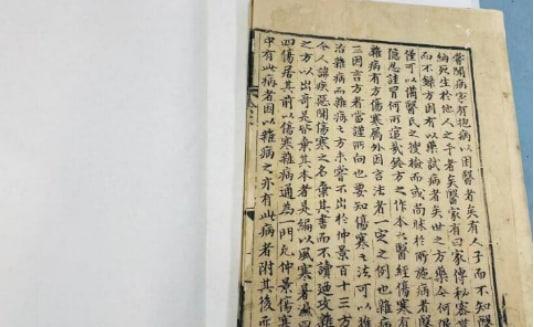 嘗聞病家有抱病以困醫者矣有人子而不知醫
死生於他人之手者矣醫家有曰家傳秘密
而不錄方因有以藥試病者矣世之方藥何限
僅可以備醫氏之搜檢而或尚昧於所施病者
隱忍冒何所宣哉鈐方之作本醫經傷寒有
雜病有方傷寒屬外因言法者一定之例也雜病
三因言方者當謹所向也要知傷寒之法可以
治雜病而雜病之方未嘗不出於仲景百十三方
今人諱疾惡聞傷寒之名棄其書而不讀廼攻雜
之方以出奇是皆棄其本者是編以風寒暑濕
四傷居其前以傷寒雜病通為一門凡仲景傷寒
中有此病者因以雜病之亦有此病者附其後